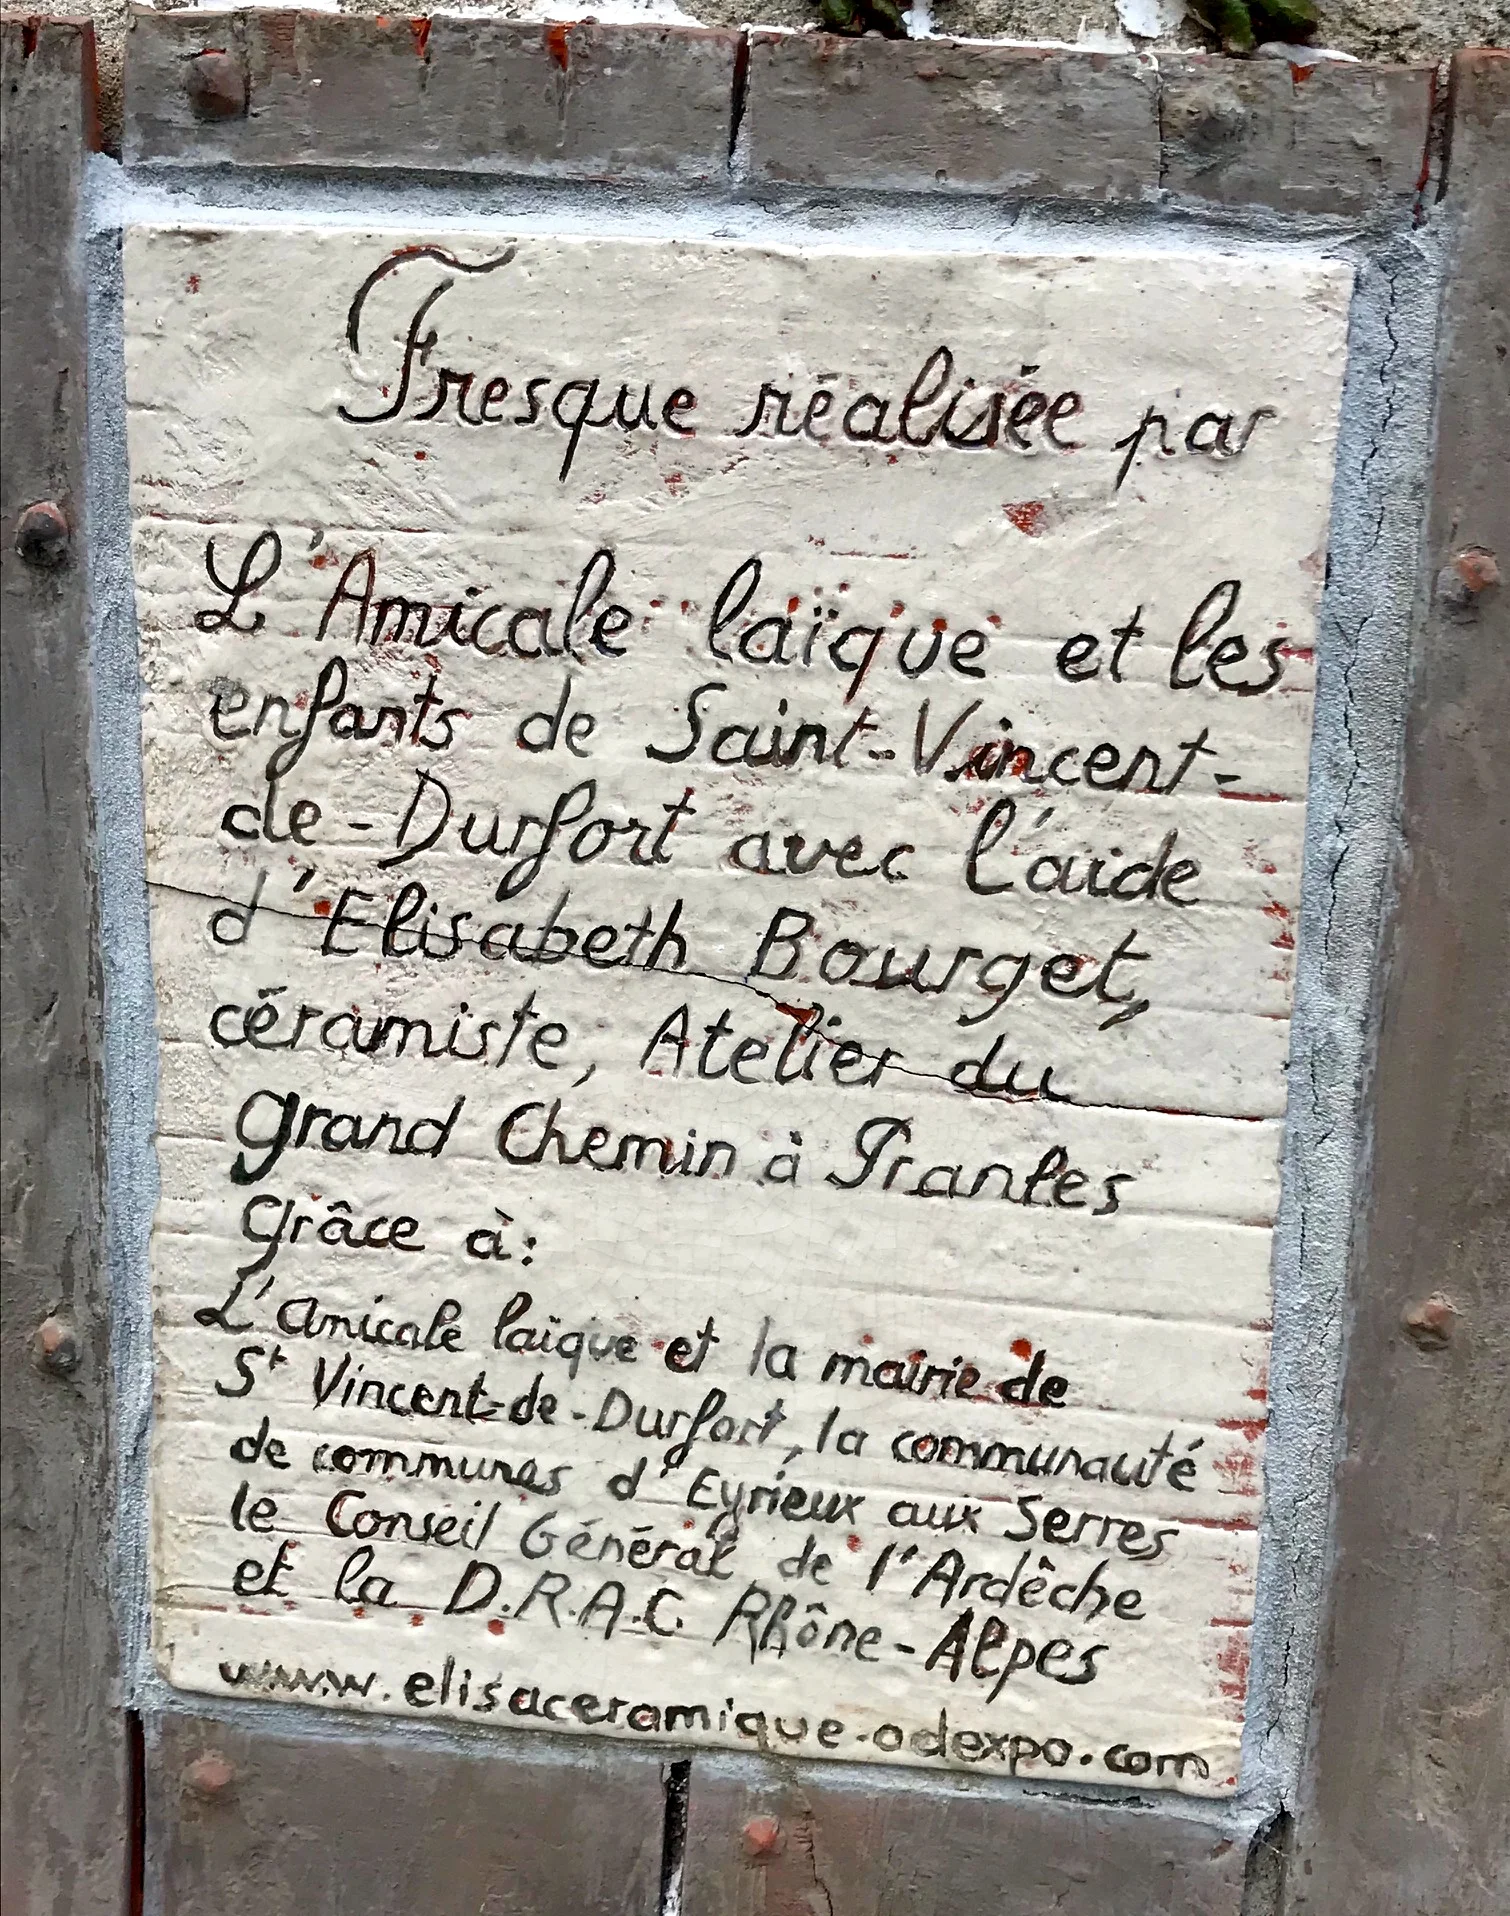 Fresque réalisée par
L'Amicale laïque et les
enfants de Saint-Vincent-
de-Durfort avec l'aide
d'Elisabeth Bourget,
céramiste, Atelier du
grand Chemin à Pranles
Grâce à:
L'amicale laïque et la mairie de
St Vincent-de-Durfort, la communauté
de communes d'Eyrieux aux Serres
le Conseil Général de l'Ardêche
et la D.R.A.C. Rhône-Alpes
www.elisaceramique.odexpo.com